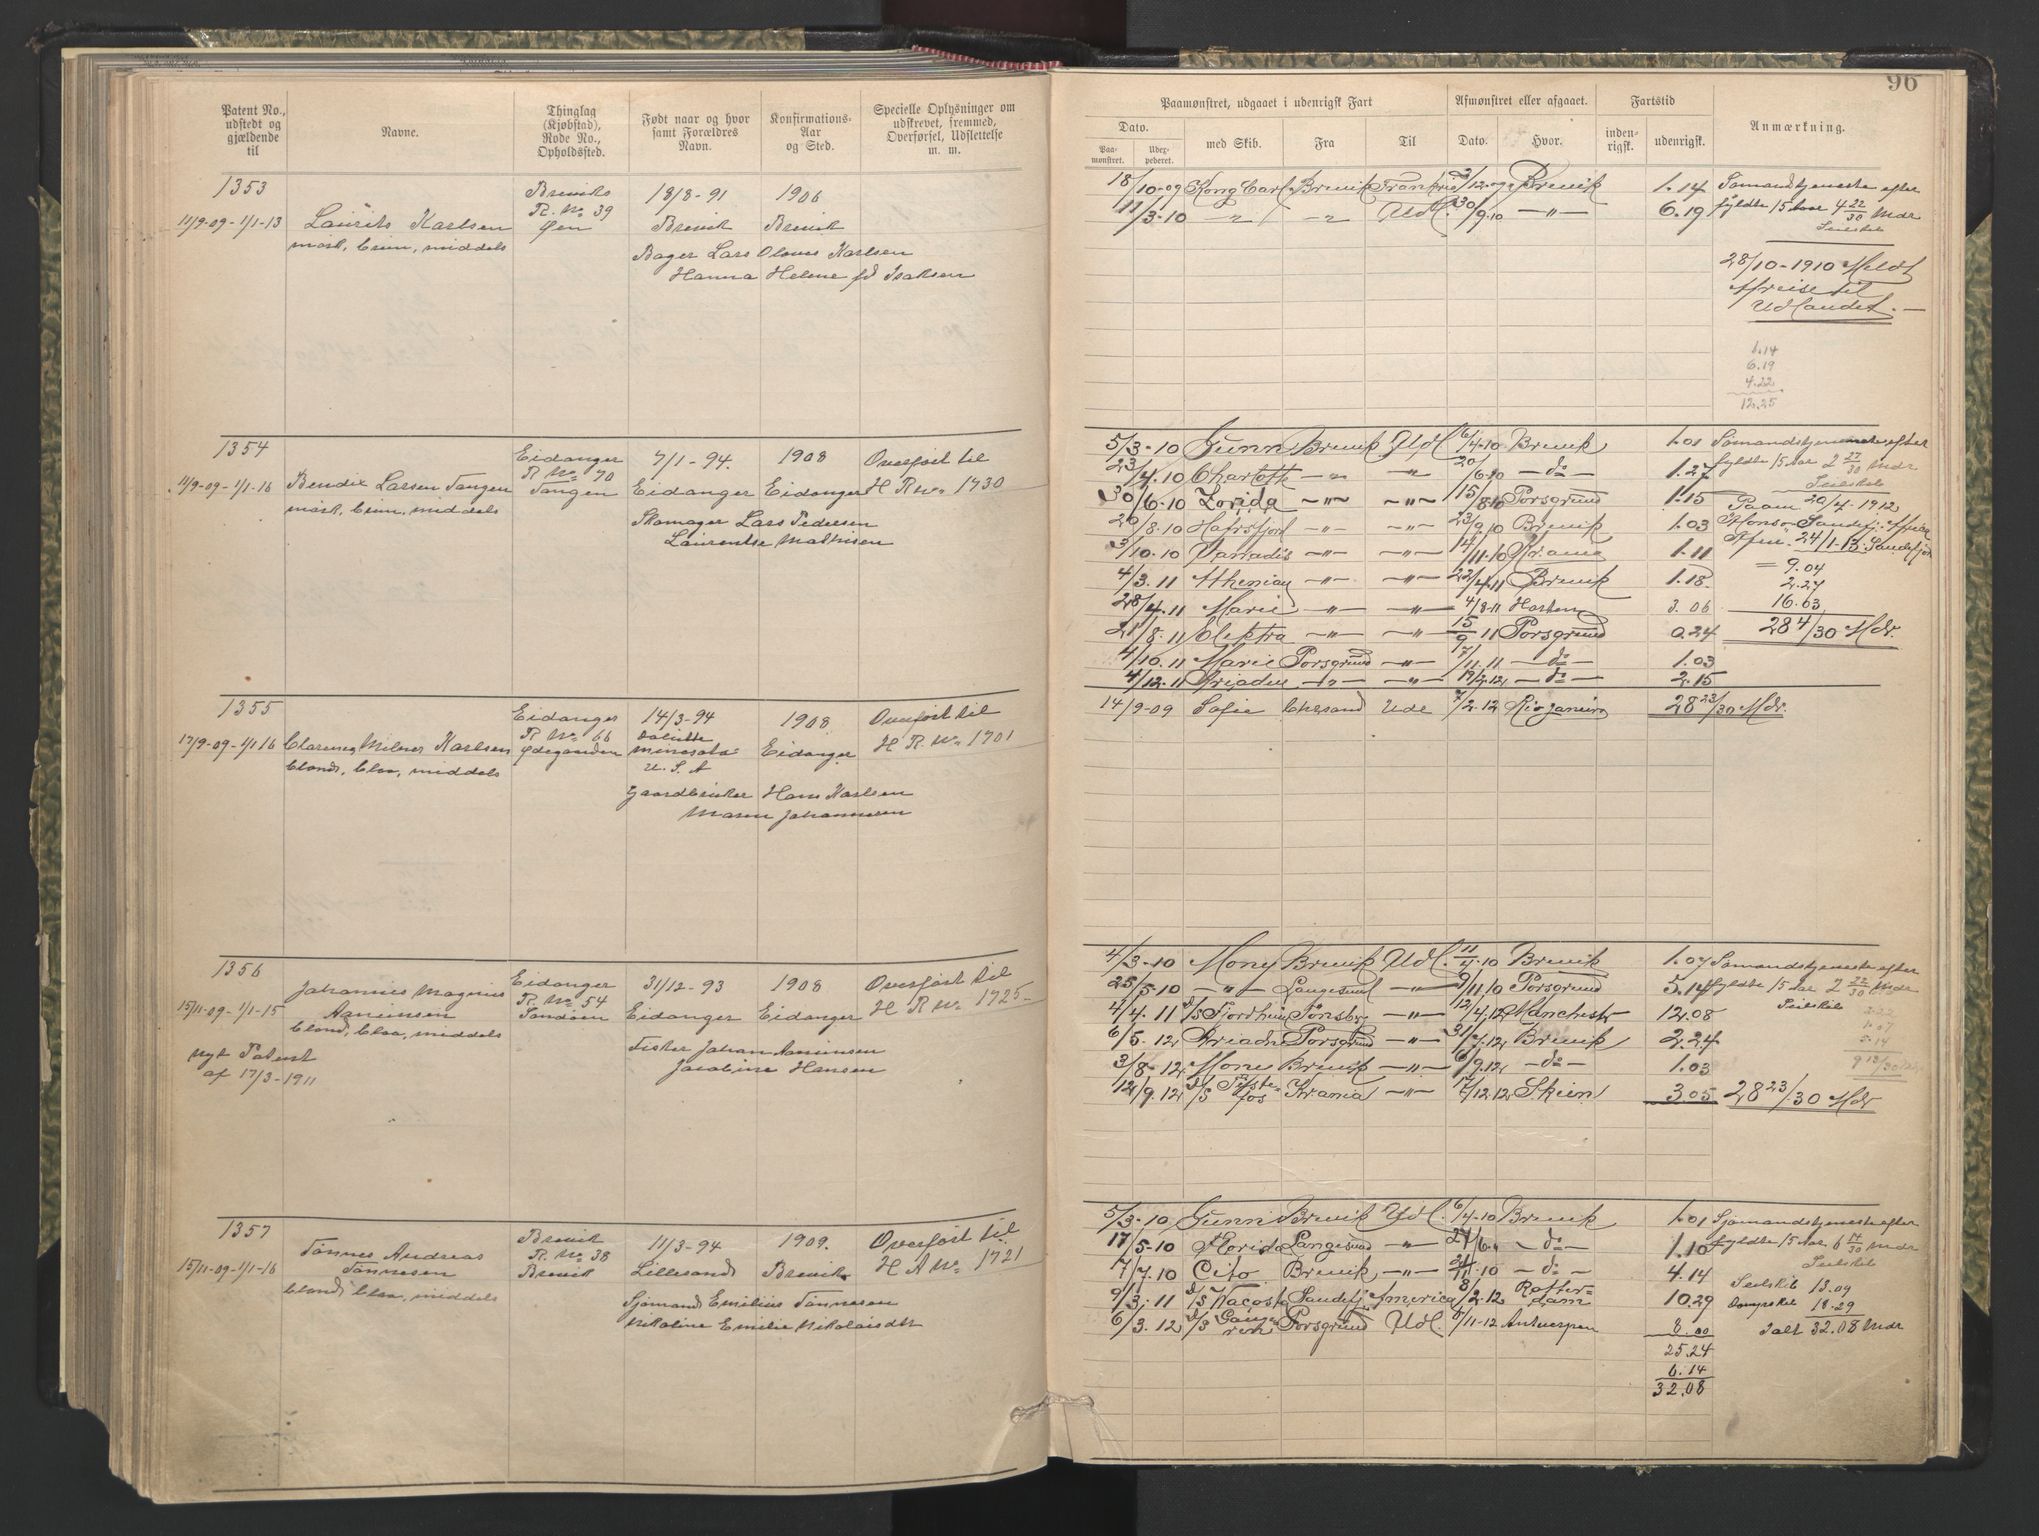 Patent No., udstedt og gjældende til
Navne.
Thinglag (Kjøbstad), Rode No., Opholdssted.
Født naar og hvor samt Forældres Navn.
Konfirmations-Aar og Sted.
Specielle Oplysninger om udskrevet, fremmed, Overførsel, Udslettelse m. m.
1353
11/9-09-1/1-13
Laurits Karlsen
mørk, brun, middels
Breviks
R. No 39
Øen
18/8-91
Brevik
1906
Brevik
Bager Lars Olaves Karlsen
Hanna Helene fd Isaksen
1354
11/9-09-1/1-16
Bendix Larsen Tangen
mørk, brun, middels
Eidanger
R. No 70
Tangen
7/1-94.
Eidanger
1908
Eidanger
Overført til
H R No 1730
Skomager Lars Pedersen
Laurentse Mathisen
1355
17/9-09-1/1 16
Clarence Milner Karlsen
blond, blaa, middels
Eidanger
R. No 66
Ødegaarden
14/3-94
minesota
U. S. A
1908
Eidanger
Overført til
H R. No 1701
Gaardbruker Hans Karlsen
Maren Johannesen
1356
15/11-09-1/1-15
Johannes Magnus
Aanensen
blond, blaa, middels
Nyt Patent
af 17/3-1911
Eidanger
R. No 54
Sandøen
31/12-93
Eidanger
1908
Eidanger
Overført til
H R No 1725
Fisker Johan Aanensen
Jacobine Hansen
1357
15/11-09-1/1-16
Tønnes Andreas
Tønnesen
blond, blaa, middels
Brevik
R. No 38
Brevik
11/3-94
Lillesand
1909.
Brevik
Overført til
H A No 1721
Sjømand Emilius Tønnesen
Nikoline Emilie Nikolaisdtr
96
Paamønstret, udgaaet i udenrigsk Fart
Afmønstret eller afgaaet.
Fartstid
Anmærkning.
Dato.
Paa-mønstret.
Udex-pederet.
med Skib.
Fra
Til
Dato.
Hvor.
inden-rigsk.
udenrigsk.
18/10-09 Kong Carl Brevik Frankrig 2/12-09 Brevik 1.14 Sømandstjeneste efter
11/3-10 -"- -"- Udl. 30/9-10 -"- 6.19 fyldte 15 Aar 4 22/30 Mdr
Seilskib
28/10-1910 Meldt
Afreise til
Udlandet.
1.14
6.19
4.22
12.25
5/3-10 Gunn Brevik Udl 6/4-10 Brevik 1.01 Sømandstjeneste efter
23/4.10 Charloth -"- -"- 20/6-10 -do- 1.27 fyldte 15 Aar 2 27/30 Mdr
Seilskib
30/6-10 Zorida -"- -"- 15/8-10 Porsgrund 1.15 Paam. 20/4-1912
20/8-10 Hafrsfjord -"- -"- 23/9/10 Brevik 1.03
3/10.10 Vanadis -"- -"- 14/11.10 1.11 Afm. 24/1-13. Sandefjor
4/3.11 -"- -"- 22/4.11 Brevik 1.18. = 9.04
2.27
28/4.11 Marie -"- -"- 4/8-11 3.06 16.63
21/8.11 Elektra -"- -"- 15/9 11 Porsgrund 0.24 28 4/30 Mdr.
4/10.11 Marie Porsgrund -"- 7/11.11 -do- 1.03
4/12-11 Ariadne -"- -"- 19/2.12 -do- 2.15
14/9-09 Sofie Chrsand Udl 7/2.12 Rio janeiro 28 23/30 Mdr.
4/3-10 Mone Brevik Udl. 11/4.10 Brevik 1.07 Sømandstjeneste efter
25/5-10 -"- Langesund -"- 9/11.10 Porsgrund 5.14 fyldte 15 Aar 2 22/30
Seilskib
4/4.11 D/S Fjordheim Tønsberg -"- 12/4.12 Manchestr 12.08
6/5.12 Ariadn Porsgrund -"- 31/7.12 Brevik 2.24
3/8-12 Mone Brevik -"- 6/9.12 -do- 1.03
12/9.12 D/S Tyste-fos Krania -"- 17/12.12 Skien 3.05 28 23/30 Mdr
2.22
1.07
5.14
9 13/30
5/3-10 Gunn Brevik Udl. 6/4-10 Brevik 1.01 Sjømandstjeneste efter
17/5-10 Florida Langesund -"- -do- 1.10 fyldte 15 Aar 6 14/30 Mdr
Seilskib
7/7.10 Cito Brevik -"- -do- 4.14 Seilskib 13.09
9/3.11 D/S Vacosta Sandefj. America 8/2.12 Rotter-dam 10.29 Dampskib 18.29
6/3.12 D/S Porsgrund Udl. 6/11-12 Antwerpen 8.00 Ialt 32.08 Mdr
25.24
6.14
32.08